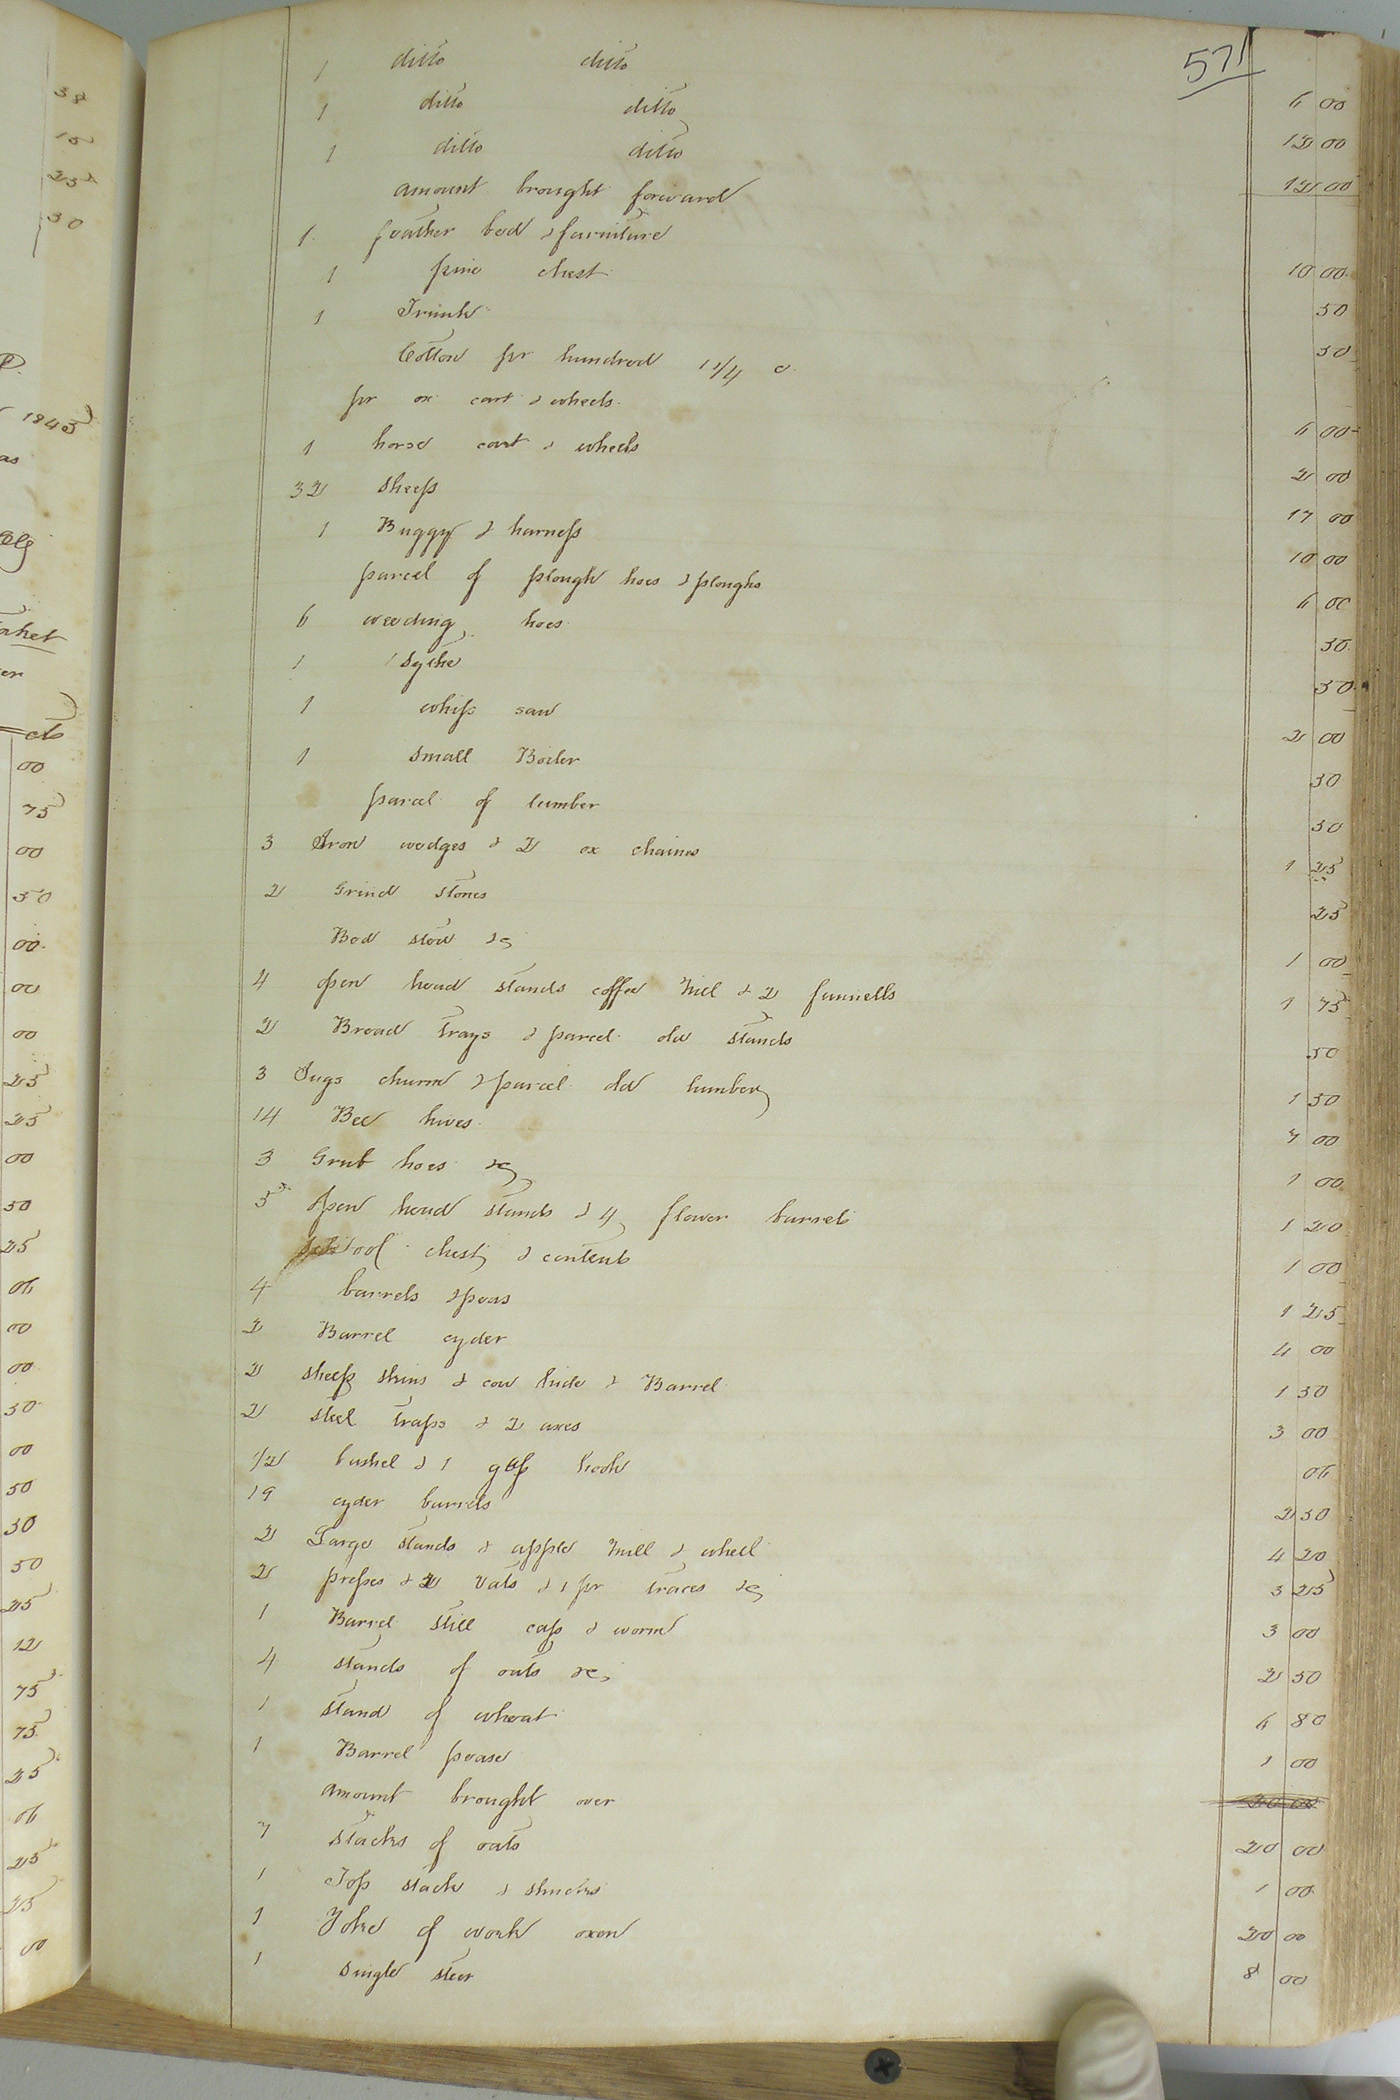 571
1 ditto ditto 6 00
1 ditto ditto 12 00
1 ditto ditto 12 00
amount brought forward
1 feather bed & furniture 10 00
1 pine chest 50
1 Trunk 50
Cotton pr hundred 1 1/4 c
pr ox cart & wheels 6 00
1 horse cart & wheels 2 00
32 sheep 17 00
1 Buggy & harness 10 00
parcel of plough hoes & ploughs 6 00
6 weeding hoes 50
1 sythe 50
1 whip saw 2 00
1 small Boiler 50
parcel of lumber 50
3 Iron wedges & 2 ox chaines 1 25
2 Grind stones 25
Bed sted &c 1 00
4 open head stands coffee mill & 2 funnells 1 75
2 Bread trays & parcel old stands 50
3 Jugs churn & parcel old lumber 1 50
14 Bee hives 7 00
3 Grub hoes &c 1 00
5 open head stands & 4 flower barrels 1 20
tool chest & contents 1 00
4 barrels & peas 1 25
2 Barrel cyder 4 00
2 sheep skins & cow hide & Barrel 1 50
2 steel traps & 2 axes 3 00
1/2 bushel & 1 hook 06
19 cyder barrels 2 50
2 Large stands & apple mill & wheel 4 20
2 presses & 2 vats & 1 pr traces &c 3 25
1 Barrel still cap & worm 3 00
4 stands of oats &c 2 50
1 stand of wheat 6 80
1 Barrel pease 1 00
amount brought over
7 stacks of oats 20 00
1 Top stack & shucks 1 00
1 Yoke of work oxen 20 00
1 single steer 8 00